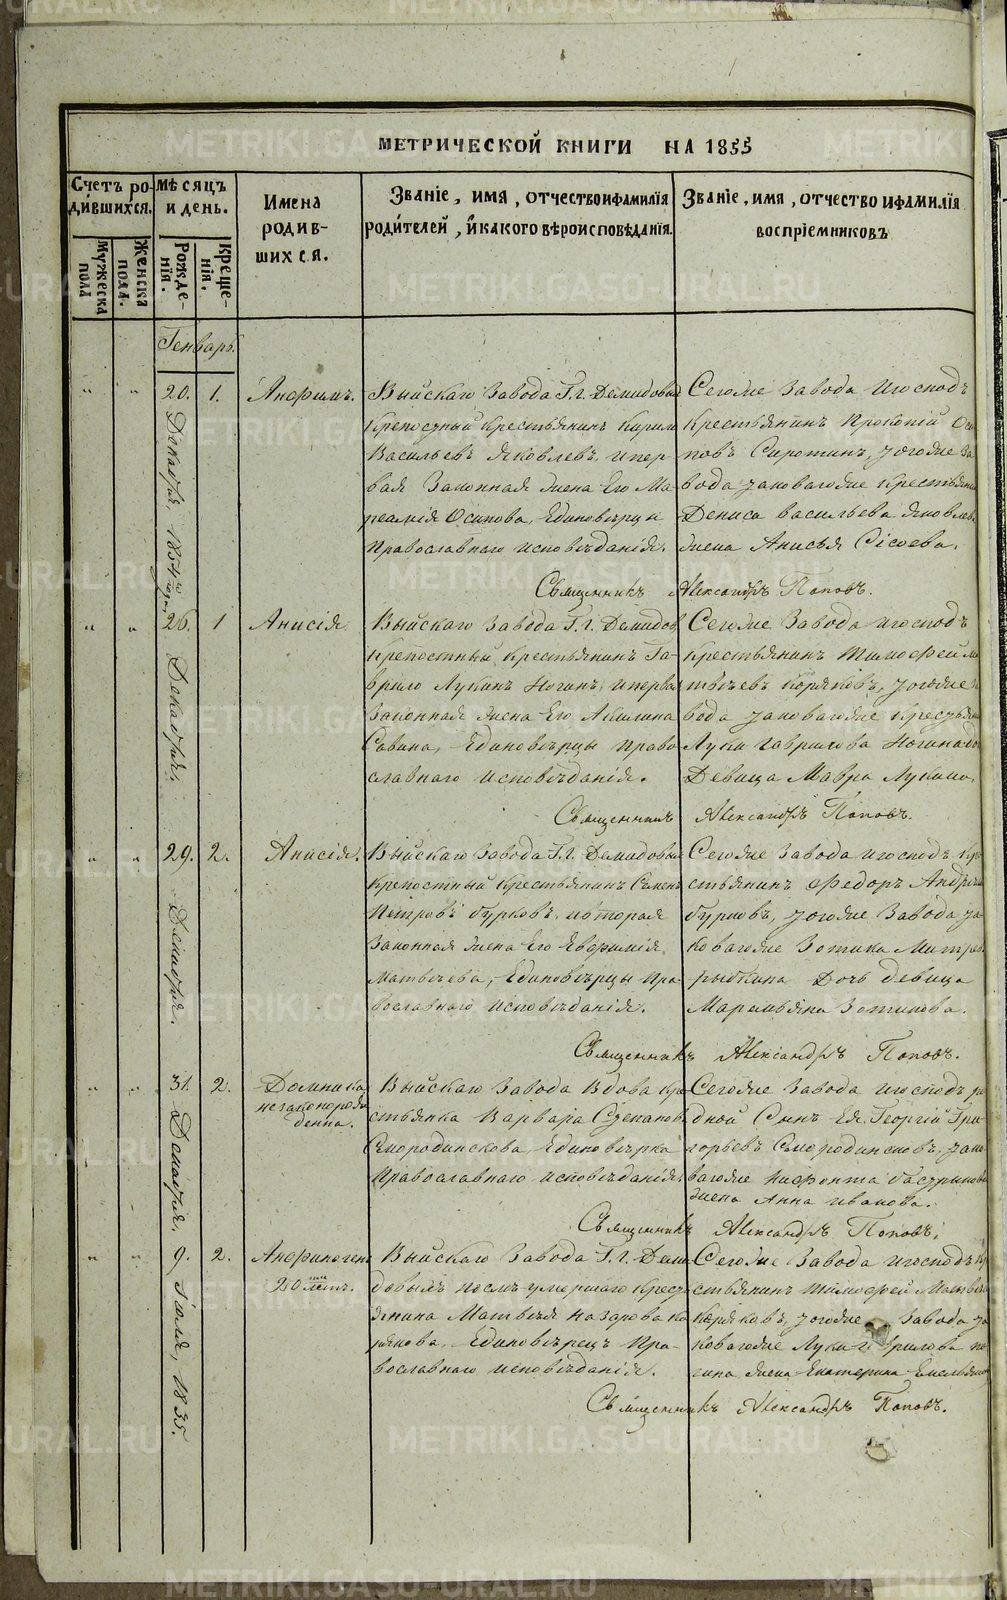 МЕТРИЧЕСКОЙ КНИГИ НА 1855
Счетъ родившихся.
Мужеска пола
Женска пола.
Мѣсяцъ и день.
Рожденія.
Крещенія.
Имена родившихся.
Званіе, имя, отчество и фамилія родителей, и какого вѣроисповѣданія.
Званіе, имя, отчество и фамилія воспріемниковъ
Генварь.
20. Декабря, 1854го года
1.
Анфимъ.
Выйскаго Завода Г.г. Демидовых
Крепостный Крестьянинъ Кирил
Васильевъ Яковлевъ, и пер
вая Законная жена Его Ма
реамія Осипова, Единовѣрцы
Православнаго исповѣданія.
Сегоже Завода и господъ
Крестьянинъ Прокопій Оси
повъ Сиротинъ, и тогоже За
вода и таковагоже Крестьяни
Дениса Васильева Яковлев
жена Анисья Сісоева.
Священникъ Александръ Поповъ.
26. Декабря,
1
Анисія
Выйскаго Завода Г.г. Демидов
Крепостный Крестьянинъ Га
врило Лукинъ Ногинъ, и перва
Законная жена Его Акилина
Савина, Единовѣрцы Право
славнаго исповѣданія.
Сегоже Завода и господъ
Крестьянинъ Тимофей Ма
твѣевъ Коряковъ, и тогоже За
вода и таковагоже Крестьяни
Луки Гаврилова Ногина до
Девица Мавра Лукина,
Священникъ Александръ Поповъ.
29. Декабря.
2.
Анисія.
Выйскаго Завода Г.г. Демидовых
Крепостный Крестьянинъ Семен
Петровъ Бурковъ, и вторая
Законная жена Его Евфимія
Матвѣева, Единовѣрцы Пра
вославнаго исповѣданія.
Сегоже Завода и господъ Кре
стьянинъ Федоръ Андреев
Бурковъ, и тогоже Завода и та
ковагоже Зотика Митро
Рыбкина Дочь девица
Маремьяна Зотикова.
Священникъ Александръ Поповъ.
31. Декабря.
2.
Домника
незаконорож
денна.
Выйскаго Завода Вдова Кре
стьянка Варвара Степанов
Смородинскова, Единовѣрка
Православнаго исповѣданія
Сегоже Завода и господъ ро
дной Сынъ Ея Георгій Гри
горьевъ Смородинсковъ, и тако
вагоже Нифонта
жена Анна Иванова.
Священникъ Александръ Поповъ,
9. Іюля, 1835.
2.
Анфиногенъ
20 ти летъ.
Выйскаго Завода Г.г. Деми
довымъ послѣ умершаго Крест
янина Матвѣя Назарова Ко
рякова, Единовѣрецъ Пра
вославнаго исповѣданія.
Сегоже Завода и господъ Кре
стьянинъ Тимофей Матвѣе
Коряковъ, и тогоже Завода и та
ковагоже Луки Гаврилова Но
гина жена Екатерина Емельяно
Священникъ Александръ Поповъ.
METRIKI.GASO-URAL.RU